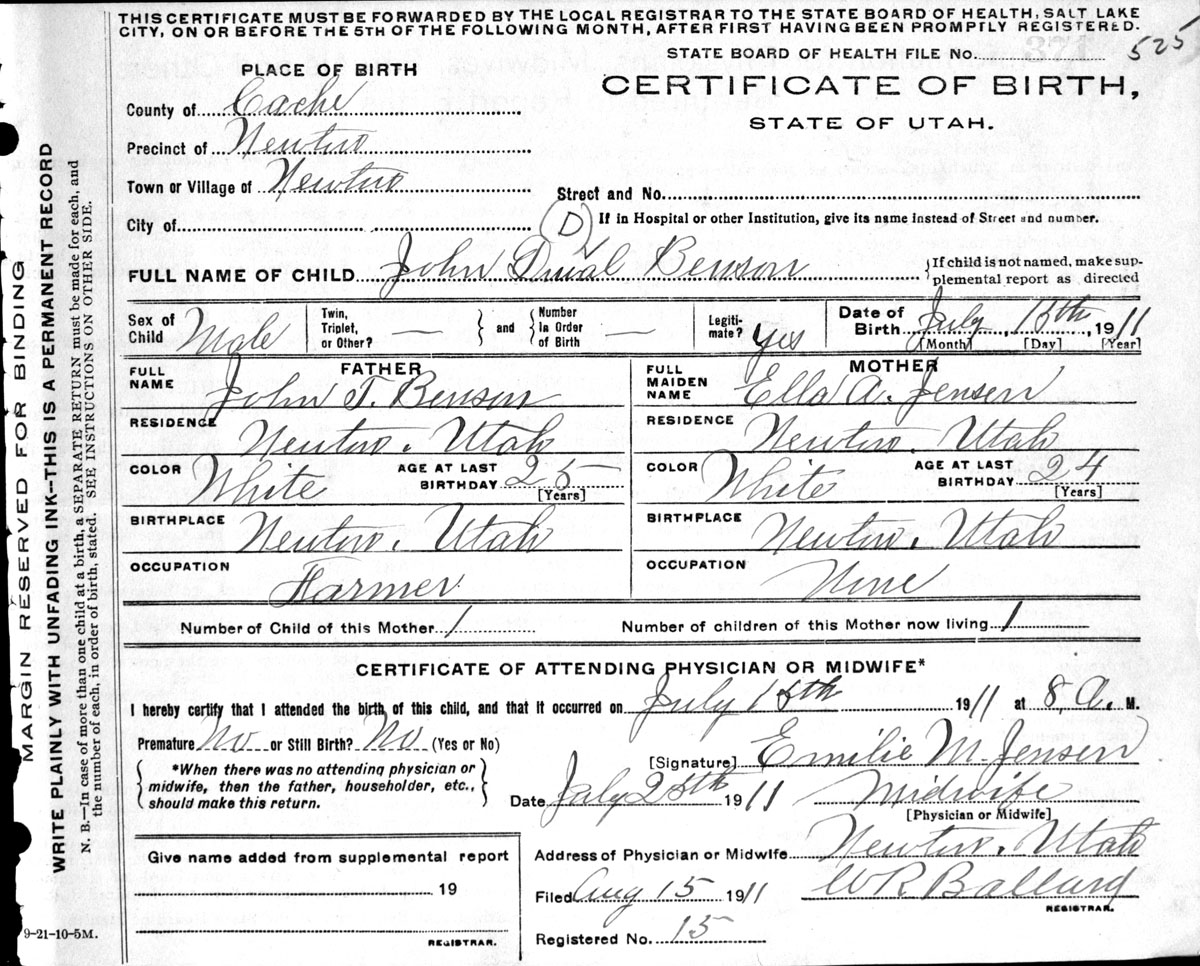 THIS CERTIFICATE MUST BE FORWARDED BY THE LOCAL REGISTRAR TO THE STATE BOARD OF HEALTH, SALT LAKE
CITY, ON OR BEFORE THE 5TH OF THE FOLLOWING MONTH, AFTER FIRST HAVING BEEN PROMPTLY REGISTERED.
STATE BOARD OF HEALTH FILE No. 525
PLACE OF BIRTH
CERTIFICATE OF BIRTH,
STATE OF UTAH.
County of Cache
Precinct of Newton
Town or Village of Newton
Street and No.
City of
(D) If in Hospital or other Institution, give its name instead of Street and number.
FULL NAME OF CHILD John Duval Benson
{If child is not named, make sup-
plemental report as directed
Sex of Child Male
Twin, Triplet, or Other? — } and { Number in Order of Birth —
Legiti-mate? Yes
Date of Birth July 15th, 1911
[Month] [Day] [Year]
FATHER
FULL NAME John T. Benson
RESIDENCE Newton, Utah
COLOR White AGE AT LAST BIRTHDAY 25
[Years]
BIRTHPLACE Newton, Utah
OCCUPATION Farmer
MOTHER
FULL MAIDEN NAME Ella A. Jensen
RESIDENCE Newton, Utah
COLOR White AGE AT LAST BIRTHDAY 24
[Years]
BIRTHPLACE Newton, Utah
OCCUPATION None
Number of Child of this Mother 1 Number of children of this Mother now living 1
CERTIFICATE OF ATTENDING PHYSICIAN OR MIDWIFE*
I hereby certify that I attended the birth of this child, and that it occurred on July 15th 1911 at 8 A. M.
Premature No or Still Birth? No (Yes or No)
[Signature] Emilie M. Jensen
{*When there was no attending physician or
midwife, then the father, householder, etc.,
should make this return.}
Date July 25th 1911 Midwife
[Physician or Midwife]
Give name added from supplemental report
19
REGISTRAR.
Address of Physician or Midwife Newton, Utah
Filed Aug 15 1911 W R Ballard
REGISTRAR.
Registered No. 15
9-21-10-5M.
MARGIN RESERVED FOR BINDING
WRITE PLAINLY WITH UNFADING INK--THIS IS A PERMANENT RECORD
N. B.—In case of more than one child at a birth, a SEPARATE RETURN must be made for each, and
the number of each, in order of birth, stated. SEE INSTRUCTIONS ON OTHER SIDE.